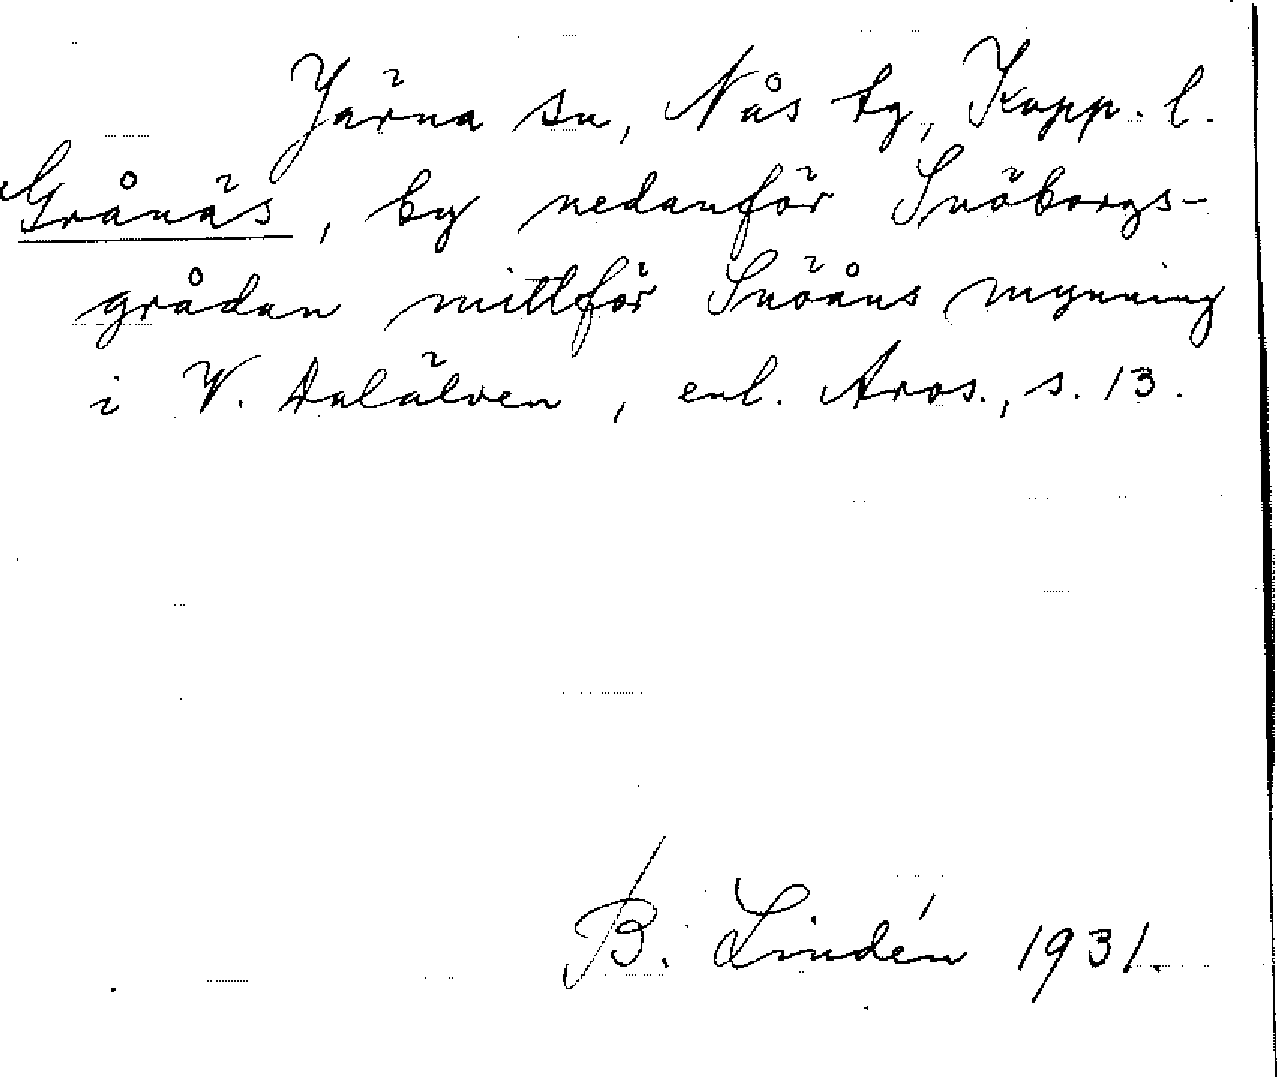 Järna sn, Nås tg, Kopp. l.
Grånäs, by nedanför Snöborgs-
grådan mittför Snöåns mynning
i V. Dalälven, enl. Aros., s. 13.
B. Lindén 1931.